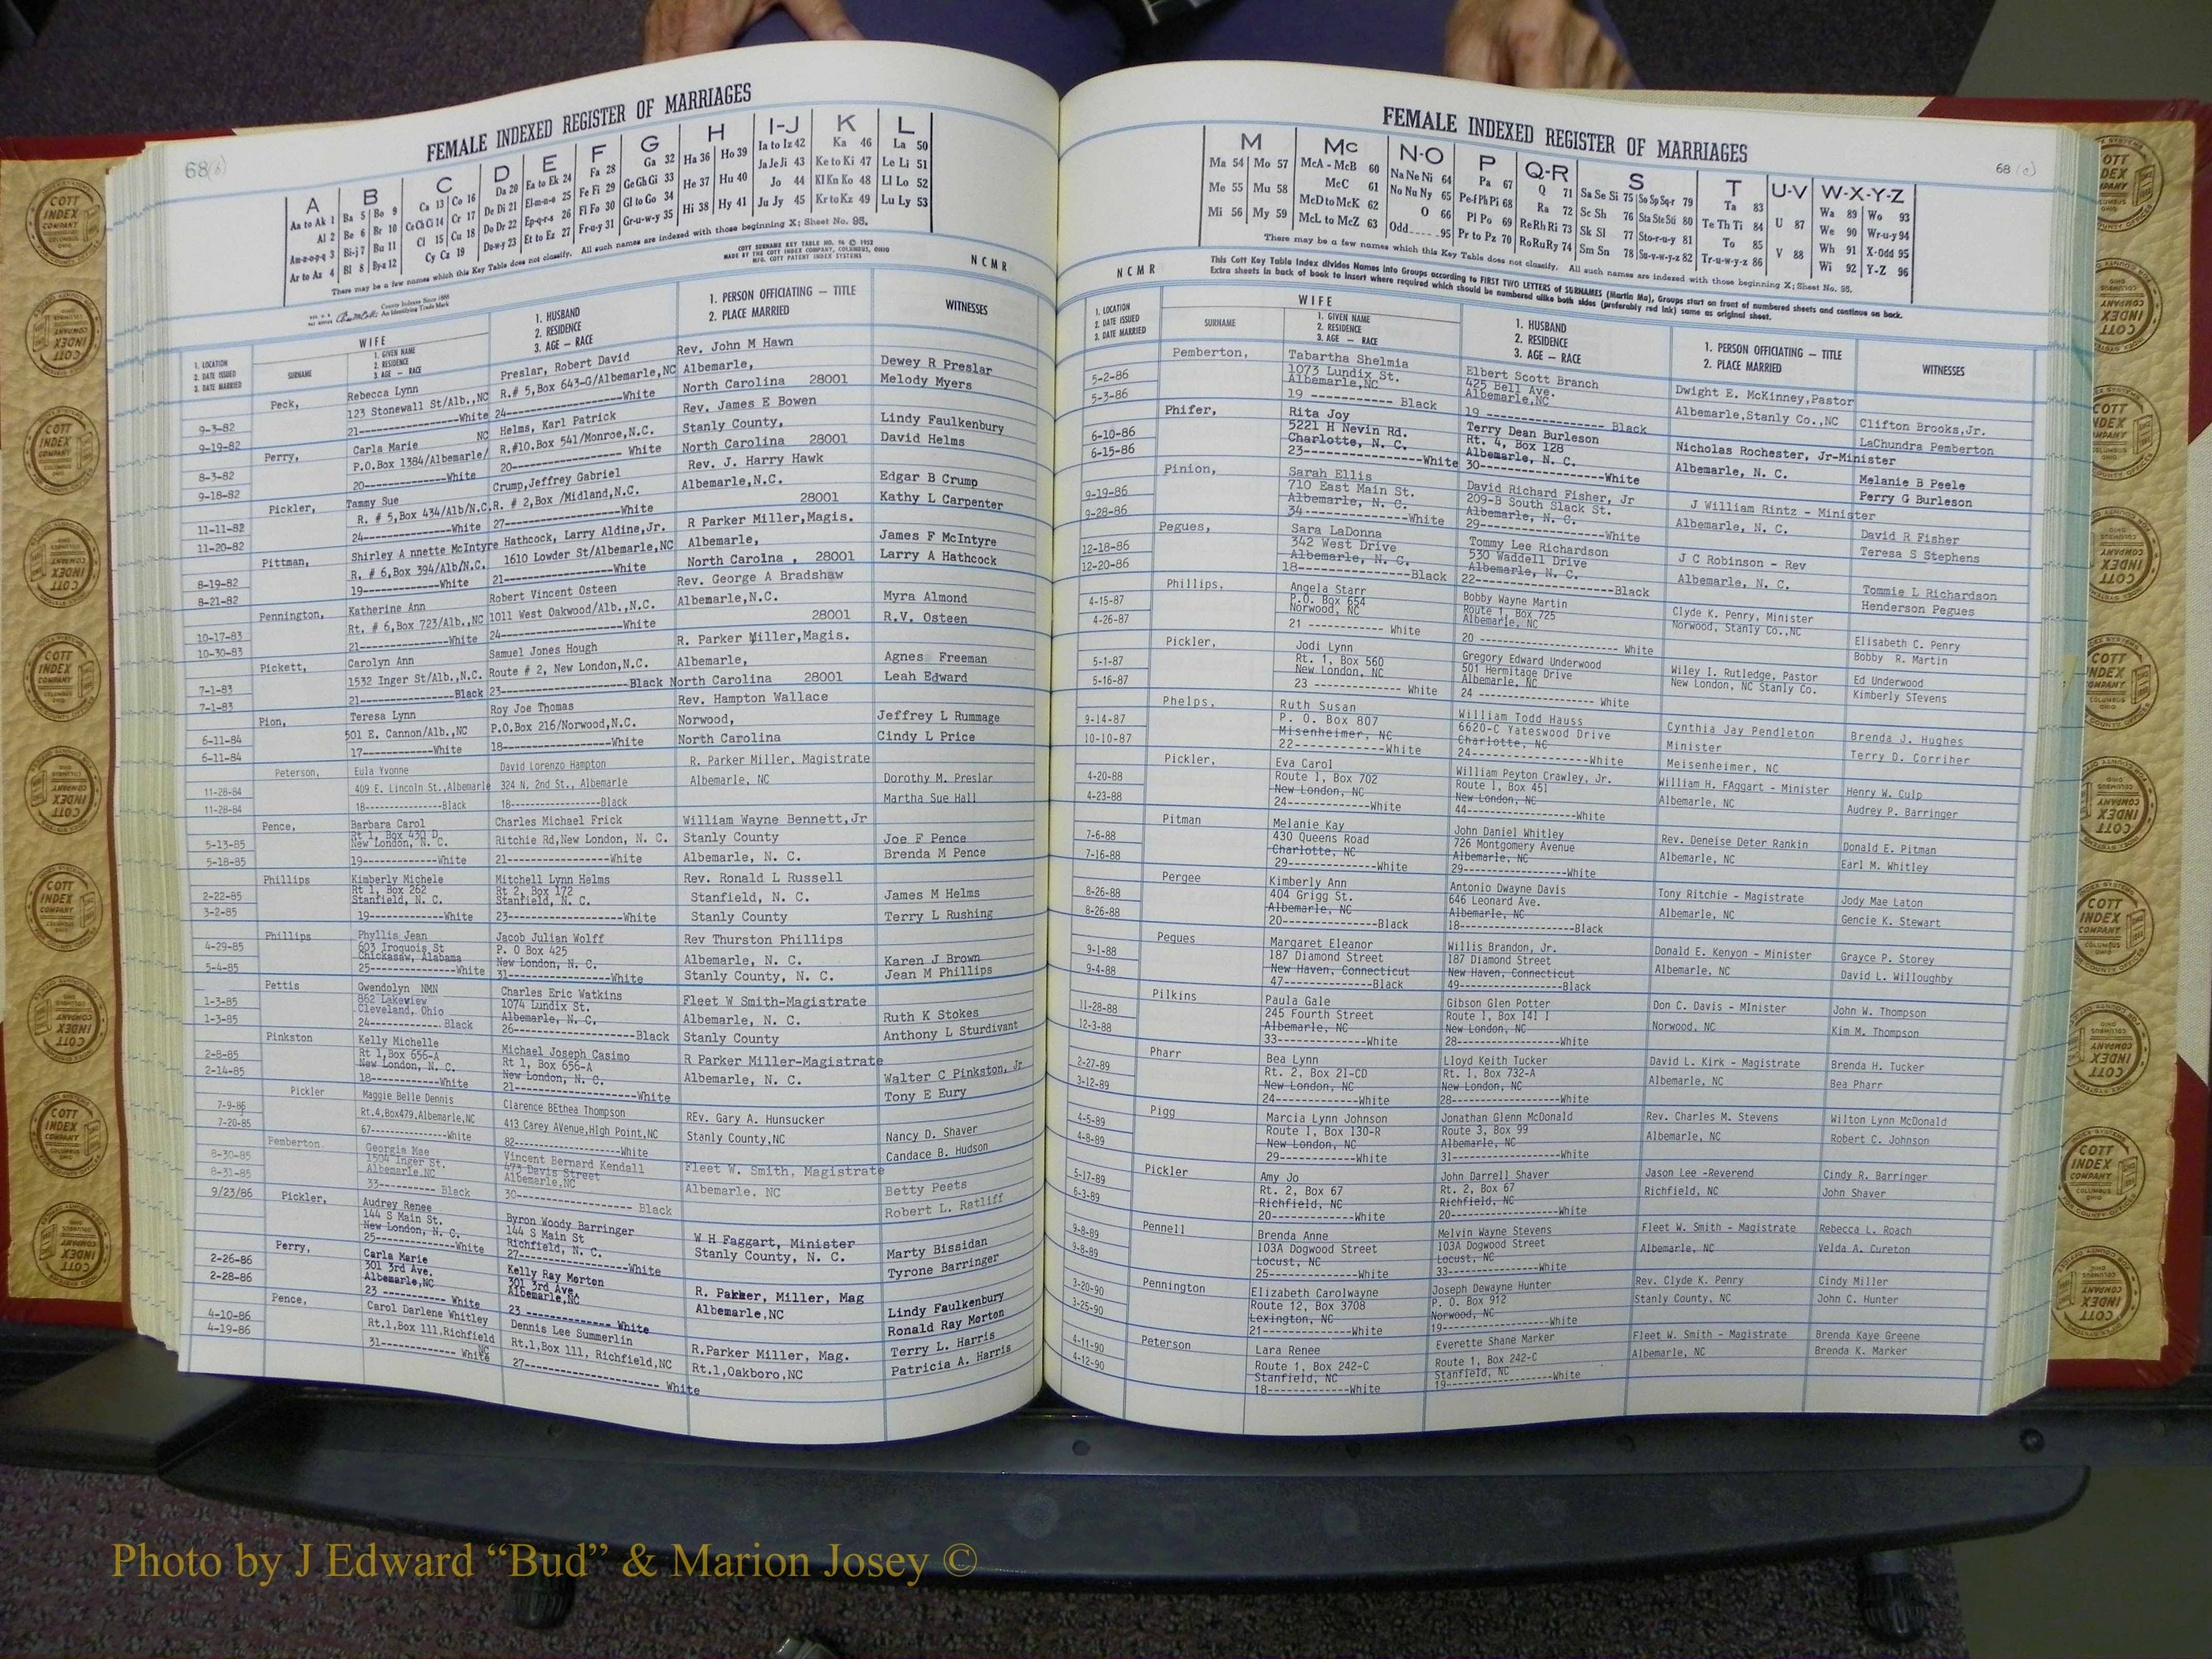 68(b)
FEMALE INDEXED REGISTER OF MARRIAGES
A B C D E F G H I-J K L
Aa to Ak 1 Ba 5 Bo 9 Ca 13 Co 16 Da 20 Ea to Ek 24 Fa 28 Ga 32 Ha 36 Ho 39 Ia to Iz 42 Ka 46 La 50
Al 2 Be 6 Br 10 Ce Ch Ci 14 Cr 17 De Di 21 El-m-n-o 25 Fe Fi 29 Ge Gh Gi 33 He 37 Hu 40 Ja Je Ji 43 Ke to Ki 47 Le Li 51
Am-n-o-p-q 3 Bi-j 7 Bu 11 Cl 15 Cu 18 Do Dr 22 Ep-q-r-s 26 Fl Fo 30 Gl to Go 34 Hi 38 Hy 41 Jo 44 Kl Kn Ko 48 Ll Lo 52
Ar to Az 4 Bl 8 By-z 12 Cy Cz 19 Du-w-y 23 Et to Ez 27 Fr-u-y 31 Gr-u-w-y 35 Ju Jy 45 Kr to Kz 49 Lu Ly 53
There may be a few names which this Key Table does not classify. All such names are indexed with those beginning X; Sheet No. 95.
COTT SURNAME KEY TABLE NO. 96 © 1952
MADE BY THE COTT INDEX COMPANY, COLUMBUS, OHIO
MFG. COTT PATENT INDEX SYSTEMS
NCMR
County Indexes Since 1888
An Identifying Trade Mark
1. LOCATION
2. DATE ISSUED
3. DATE MARRIED
WIFE
SURNAME
1. GIVEN NAME
2. RESIDENCE
3. AGE — RACE
1. HUSBAND
2. RESIDENCE
3. AGE — RACE
1. PERSON OFFICIATING — TITLE
2. PLACE MARRIED
WITNESSES
Peck, Rebecca Lynn Preslar, Robert David Rev. John M Hawn
9-3-82 123 Stonewall St/Alb.,NC R.# 5,Box 643-G/Albemarle,NC Albemarle, Dewey R Preslar
9-19-82 21---White 24---White North Carolina 28001 Melody Myers
Perry, Carla Marie NC Helms, Karl Patrick Rev. James E Bowen
8-3-82 P.O.Box 1384/Albemarle/ R.#10.Box 541/Monroe,N.C. Stanly County, Lindy Faulkenbury
9-18-82 20---White 20---White North Carolina 28001 David Helms
Pickler, Tammy Sue Crump,Jeffrey Gabriel Rev. J. Harry Hawk
11-11-82 R. # 5,Box 434/Alb/N.C. R. # 2,Box /Midland,N.C. Albemarle,N.C. Edgar B Crump
11-20-82 24---White 27---White 28001 Kathy L Carpenter
Pittman, Shirley A nnette McIntyre Hathcock, Larry Aldine,Jr. R Parker Miller,Magis.
8-19-82 R. # 6,Box 394/Alb/N.C. 1610 Lowder St/Albemarle,NC Albemarle, James F McIntyre
8-21-82 19---White 21---White North Carolna , 28001 Larry A Hathcock
Pennington, Katherine Ann Robert Vincent Osteen Rev. George A Bradshaw
10-17-83 Rt. # 6,Box 723/Alb.,NC 1011 West Oakwood/Alb.,N.C. Albemarle,N.C. Myra Almond
10-30-83 21---White 24---White 28001 R.V. Osteen
Pickett, Carolyn Ann Samuel Jones Hough R. Parker Miller,Magis.
7-1-83 1532 Inger St/Alb.,N.C. Route # 2, New London,N.C. Albemarle, Agnes Freeman
7-1-83 21---Black 23---Black North Carolina 28001 Leah Edward
Pion, Teresa Lynn Roy Joe Thomas Rev. Hampton Wallace
6-11-84 501 E. Cannon/Alb.,NC P.O.Box 216/Norwood,N.C. Norwood, Jeffrey L Rummage
6-11-84 17---White 18---White North Carolina Cindy L Price
Peterson, Eula Yvonne David Lorenzo Hampton R. Parker Miller, Magistrate
11-28-84 409 E. Lincoln St.,Albemarle 324 N. 2nd St., Albemarle Albemarle, NC Dorothy M. Preslar
11-28-84 18---Black 18---Black Martha Sue Hall
Pence, Barbara Carol Charles Michael Frick William Wayne Bennett,Jr
5-13-85 Rt 1, Box 430 D Ritchie Rd,New London, N. C. Stanly County Joe F Pence
New London, N. C.
5-18-85 19---White 21---White Albemarle, N. C. Brenda M Pence
Phillips Kimberly Michele Mitchell Lynn Helms Rev. Ronald L Russell
2-22-85 Rt 1, Box 262 Rt 2, Box 172 Stanfield, N. C. James M Helms
Stanfield, N. C. Stanfield, N. C.
3-2-85 19---White 23---White Stanly County Terry L Rushing
Phillips Phyllis Jean Jacob Julian Wolff Rev Thurston Phillips
4-29-85 603 Iroquois St P. O Box 425 Albemarle, N. C. Karen J Brown
Chickasaw, Alabama New London, N. C.
5-4-85 25---White 31---White Stanly County, N. C. Jean M Phillips
Pettis Gwendolyn NMN Charles Eric Watkins Fleet W Smith-Magistrate
1-3-85 862 Lakeview 1074 Lundix St. Albemarle, N. C. Ruth K Stokes
Cleveland, Ohio Albemarle, N. C.
1-3-85 24---Black 26---Black Stanly County Anthony L Sturdivant
Pinkston Kelly Michelle Michael Joseph Casimo R Parker Miller-Magistrate
2-8-85 Rt 1,Box 656-A Rt 1, Box 656-A Albemarle, N. C. Walter C Pinkston, Jr
New London, N. C. New London, N. C.
2-14-85 18---White 21---White Tony E Eury
Pickler Maggie Belle Dennis Clarence BEthea Thompson REv. Gary A. Hunsucker
7-9-85 Rt.4,Box479,Albemarle,NC 413 Carey AVenue,HIgh Point,NC Stanly County,NC Nancy D. Shaver
7-20-85 67---White 82---White Candace B. Hudson
Pemberton. Georgia Mae Vincent Bernard Kendall Fleet W. Smith, Magistrate
8-30-85 1504 Inger St. 473 Davis Street Albemarle. NC Betty Peets
Albemarle,NC Albemarle,NC
8-31-85 33--- Black 30--- Black Robert L. Ratliff
9/23/86 Pickler, Audrey Renee Byron Woody Barringer W H Faggart, Minister
144 S Main St. 144 S Main St Stanly County, N. C. Marty Bissidan
New London, N. C. Richfield, N. C. Tyrone Barringer
25---White 27---White
Perry, Carla Marie Kelly Ray Morton
2-26-86 301 3rd Ave. 301 3rd Ave. R. Parker, Miller, Mag Lindy Faulkenbury
2-28-86 Albemarle,NC Albemarle,NC Albemarle,NC Ronald Ray Morton
23 --- White 23 --- White
Pence, Carol Darlene Whitley Dennis Lee Summerlin R.Parker Miller, Mag. Terry L. Harris
4-10-86 Rt.1,Box 111.Richfield NC Rt.1,Box 111, Richfield,NC Rt.1,Oakboro,NC Patricia A. Harris
4-19-86 31--- White 27--- White
68 (c)
FEMALE INDEXED REGISTER OF MARRIAGES
M Mc N-O P Q-R S T U-V W-X-Y-Z
Ma 54 Mo 57 McA - McB 60 Na Ne Ni 64 Pa 67 Q 71 Sa Se Si 75 So Sp Sq-r 79 Ta 83 U 87 Wa 89 Wo 93
Me 55 Mu 58 McC 61 No Nu Ny 65 Pe-f Ph Pi 68 Ra 72 Sc Sh 76 Sta Ste Sti 80 Te Th Ti 84 We 90 Wr-u-y 94
Mi 56 My 59 McD to McK 62 O 66 Pl Po 69 Re Rh Ri 73 Sk Sl 77 Sto-r-u-y 81 To 85 V 88 Wh 91 X-Odd 95
McL to McZ 63 Odd 95 Pr to Pz 70 Ro Ru Ry 74 Sm Sn 78 Su-v-w-y-z 82 Tr-u-w-y-z 86 Wi 92 Y-Z 96
There may be a few names which this Key Table does not classify. All such names are indexed with those beginning X; Sheet No. 95.
NCMR
This Cott Key Table Index divides Names into Groups according to FIRST TWO LETTERS of SURNAMES (Martin Ma), Groups start on front of numbered sheets and continue on back.
Extra sheets in back of book to insert where required which should be numbered alike both sides (preferably red ink) same as original sheet.
1. LOCATION
2. DATE ISSUED
3. DATE MARRIED
WIFE
SURNAME
1. GIVEN NAME
2. RESIDENCE
3. AGE — RACE
1. HUSBAND
2. RESIDENCE
3. AGE — RACE
1. PERSON OFFICIATING — TITLE
2. PLACE MARRIED
WITNESSES
Pemberton, Tabartha Shelmia Elbert Scott Branch Dwight E. McKinney,Pastor
5-2-86 1073 Lundix St. 425 Bell Ave. Albemarle,Stanly Co.,NC Clifton Brooks,Jr.
Albemarle,NC Albemarle,NC
5-3-86 19 --- Black 19 --- Black LaChundra Pemberton
Phifer, Rita Joy Terry Dean Burleson Nicholas Rochester, Jr-Minister
6-10-86 5221 H Nevin Rd. Rt. 4, Box 128 Albemarle, N. C. Melanie B Peele
Charlotte, N. C. Albemarle, N. C.
6-15-86 23---White 30---White Perry G Burleson
Pinion, Sarah Ellis David Richard Fisher, Jr J William Rintz - Minister
9-19-86 710 East Main St. 209-B South Slack St. Albemarle, N. C. David R Fisher
Albemarle, N. C. Albemarle, N. C.
9-28-86 34---White 29---White Teresa S Stephens
Pegues, Sara LaDonna Tommy Lee Richardson J C Robinson - Rev
12-18-86 342 West Drive 530 Waddell Drive Albemarle, N. C. Tommie L Richardson
Albemarle, N. C. Albemarle, N. C.
12-20-86 18---Black 22---Black Henderson Pegues
Phillips, Angela Starr Bobby Wayne Martin Clyde K. Penry, Minister
4-15-87 P.O. Box 654 Route 1, Box 725 Norwood, Stanly Co.,NC Elisabeth C. Penry
Norwood, NC Albemarle, NC
4-26-87 21 --- White 20 --- White Bobby R. Martin
Pickler, Jodi Lynn Gregory Edward Underwood Wiley I. Rutledge, Pastor
5-1-87 Rt. 1, Box 560 501 Hermitage Drive New London, NC Stanly Co. Ed Underwood
New London, NC Albemarle, NC
5-16-87 23 --- White 24 --- White Kimberly STevens
Phelps, Ruth Susan William Todd Hauss Cynthia Jay Pendleton
9-14-87 P. O. Box 807 6620-C Yateswood Drive Minister Brenda J. Hughes
Misenheimer, NC Charlotte, NC
10-10-87 22---White 24---White Meisenheimer, NC Terry D. Corriher
Pickler, Eva Carol William Peyton Crawley, Jr. William H. FAggart - Minister
4-20-88 Route 1, Box 702 Route 1, Box 451 Albemarle, NC Henry W. Culp
New London, NC New London, NC
4-23-88 24---White 44---White Audrey P. Barringer
Pitman Melanie Kay John Daniel Whitley Rev. Deneise Deter Rankin
7-6-88 430 Queens Road 726 Montgomery Avenue Albemarle, NC Donald E. Pitman
Charlotte, NC Albemarle, NC
7-16-88 29---White 29---White Earl M. Whitley
Pergee Kimberly Ann Antonio Dwayne Davis Tony Ritchie - Magistrate
8-26-88 404 Grigg St. 646 Leonard Ave. Albemarle, NC Jody Mae Laton
Albemarle, NC Albemarle, NC
8-26-88 20---Black 18---Black Gencie K. Stewart
Pegues Margaret Eleanor Willis Brandon, Jr. Donald E. Kenyon - Minister
9-1-88 187 Diamond Street 187 Diamond Street Albemarle, NC Grayce P. Storey
New Haven, Connecticut New Haven, Connecticut
9-4-88 47---Black 49---Black David L. Willoughby
Pilkins Paula Gale Gibson Glen Potter Don C. Davis - MInister
11-28-88 245 Fourth Street Route 1, Box 141 I Norwood, NC John W. Thompson
Albemarle, NC New London, NC
12-3-88 33---White 28---White Kim M. Thompson
Pharr Bea Lynn Lloyd Keith Tucker David L. Kirk - Magistrate
2-27-89 Rt. 2, Box 21-CD Rt. 1, Box 732-A Albemarle, NC Brenda H. Tucker
New London, NC New London, NC
3-12-89 24---White 28---White Bea Pharr
Pigg Marcia Lynn Johnson Jonathan Glenn McDonald Rev. Charles M. Stevens
4-5-89 Route 1, Box 130-R Route 3, Box 99 Albemarle, NC Wilton Lynn McDonald
New London, NC Albemarle, NC
4-8-89 29---White 31---White Robert C. Johnson
Pickler Amy Jo John Darrell Shaver Jason Lee -Reverend
5-17-89 Rt. 2, Box 67 Rt. 2, Box 67 Richfield, NC Cindy R. Barringer
Richfield, NC Richfield, NC
6-3-89 20---White 20---White John Shaver
Pennell Brenda Anne Melvin Wayne Stevens Fleet W. Smith - Magistrate
9-8-89 103A Dogwood Street 103A Dogwood Street Albemarle, NC Rebecca L. Roach
Locust, NC Locust, NC
9-8-89 25---White 33---White Velda A. Cureton
Pennington Elizabeth Carolwayne Joseph Dewayne Hunter Rev. Clyde K. Penry
3-20-90 Route 12, Box 3708 P. O. Box 912 Stanly County, NC Cindy Miller
Lexington, NC Norwood, NC
3-25-90 21---White 19---White John C. Hunter
Peterson Lara Renee Everette Shane Marker Fleet W. Smith - Magistrate
4-11-90 Route 1, Box 242-C Route 1, Box 242-C Albemarle, NC Brenda Kaye Greene
Stanfield, NC Stanfield, NC
4-12-90 18---White 19---White Brenda K. Marker
COTT INDEX COMPANY COLUMBUS OHIO
Photo by J Edward “Bud” & Marion Josey ©